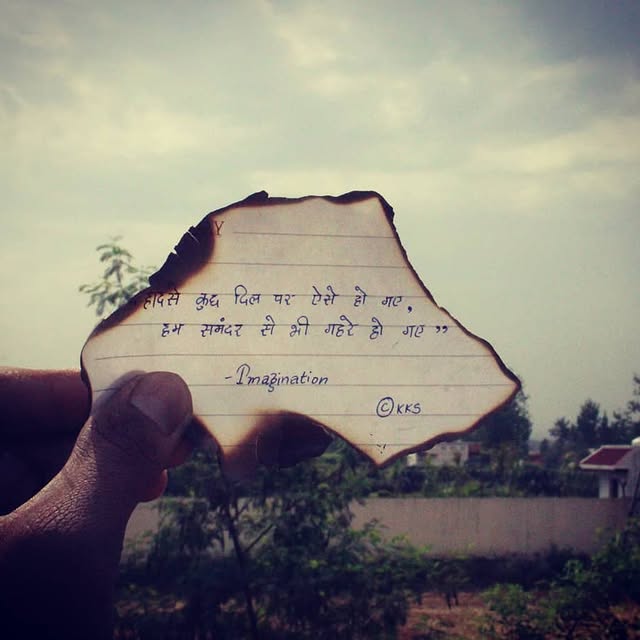 Y
हादसे कुछ दिल पर ऐसे हो गए,
हम समंदर से भी गहरे हो गए ”
- Imagination
© KKS